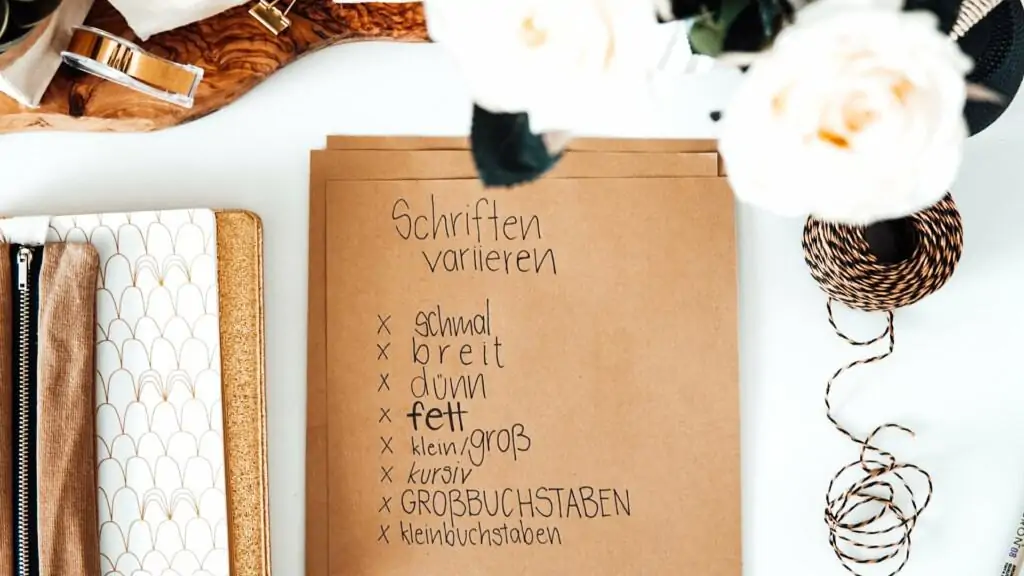 Schriften
variieren
x schmal
x breit
x dünn
x fett
x klein/groß
x kursiv
x GROßBUCHSTABEN
x kleinbuchstaben